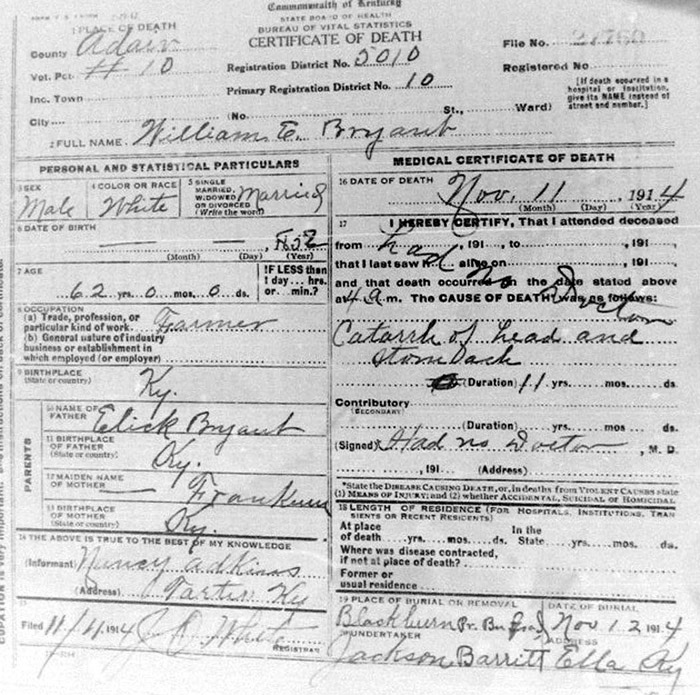 Commonwealth of Kentucky
STATE BOARD OF HEALTH
BUREAU OF VITAL STATISTICS
CERTIFICATE OF DEATH
1 PLACE OF DEATH
County Adair
Vot. Pct. # 10
Inc. Town
City
Registration District No. 5010
Primary Registration District No. 10
File No.
Registered No.
[If death occurred in a
hospital or institution,
give its NAME instead of
street and number.]
(No. St., Ward)
2 FULL NAME William E. Bryant
PERSONAL AND STATISTICAL PARTICULARS
3 SEX
Male
4 COLOR OR RACE
White
5 SINGLE
MARRIED,
WIDOWED
OR DIVORCED
(Write the word)
Married
6 DATE OF BIRTH
(Month) (Day) (Year)
7 AGE
62 yrs. 0 mos. 0 ds.
IF LESS than
1 day... hrs.
or... min.?
8 OCCUPATION
(a) Trade, profession, or
particular kind of work. Farmer
(b) General nature of industry
business or establishment in
which employed (or employer)
9 BIRTHPLACE
(State or country)
Ky.
PARENTS
10 NAME OF
FATHER
Elick Bryant
11 BIRTHPLACE
OF FATHER
(State or country)
Ky.
12 MAIDEN NAME
OF MOTHER
13 BIRTHPLACE
OF MOTHER
(State or country)
Ky.
14 THE ABOVE IS TRUE TO THE BEST OF MY KNOWLEDGE
(Informant) Nancy Adkins
(Address) Ky
15
Filed 1914 J. O. White
REGISTRAR
MEDICAL CERTIFICATE OF DEATH
16 DATE OF DEATH
Nov. 11, 1914
(Month) (Day) (Year)
17
I HEREBY CERTIFY, That I attended deceased
from , 191 , to , 191
that I last saw h alive on , 191
and that death occurred on the date stated above
at 4 a.m. The CAUSE OF DEATH was as follows:
Had no Doctor
Catarrh of head and
Stomach
(Duration) 11 yrs. mos. ds.
Contributory
(SECONDARY)
(Duration) yrs. mos. ds.
(Signed) Had no Doctor, M. D.
, 191 (Address)
*State the DISEASE CAUSING DEATH, or, in deaths from VIOLENT CAUSES state
(1) MEANS OF INJURY; and (2) whether ACCIDENTAL, SUICIDAL OR HOMICIDAL
18 LENGTH OF RESIDENCE (FOR HOSPITALS, INSTITUTIONS, TRAN
SIENTS OR RECENT RESIDENTS)
At place
of death yrs. mos. ds.
In the
State yrs. mos. ds.
Where was disease contracted,
if not at place of death?
Former or
usual residence
19 PLACE OF BURIAL OR REMOVAL
Blackburn
DATE OF BURIAL
Nov 12 1914
20 UNDERTAKER
Jackson Barritt
ADDRESS
Ella Ky